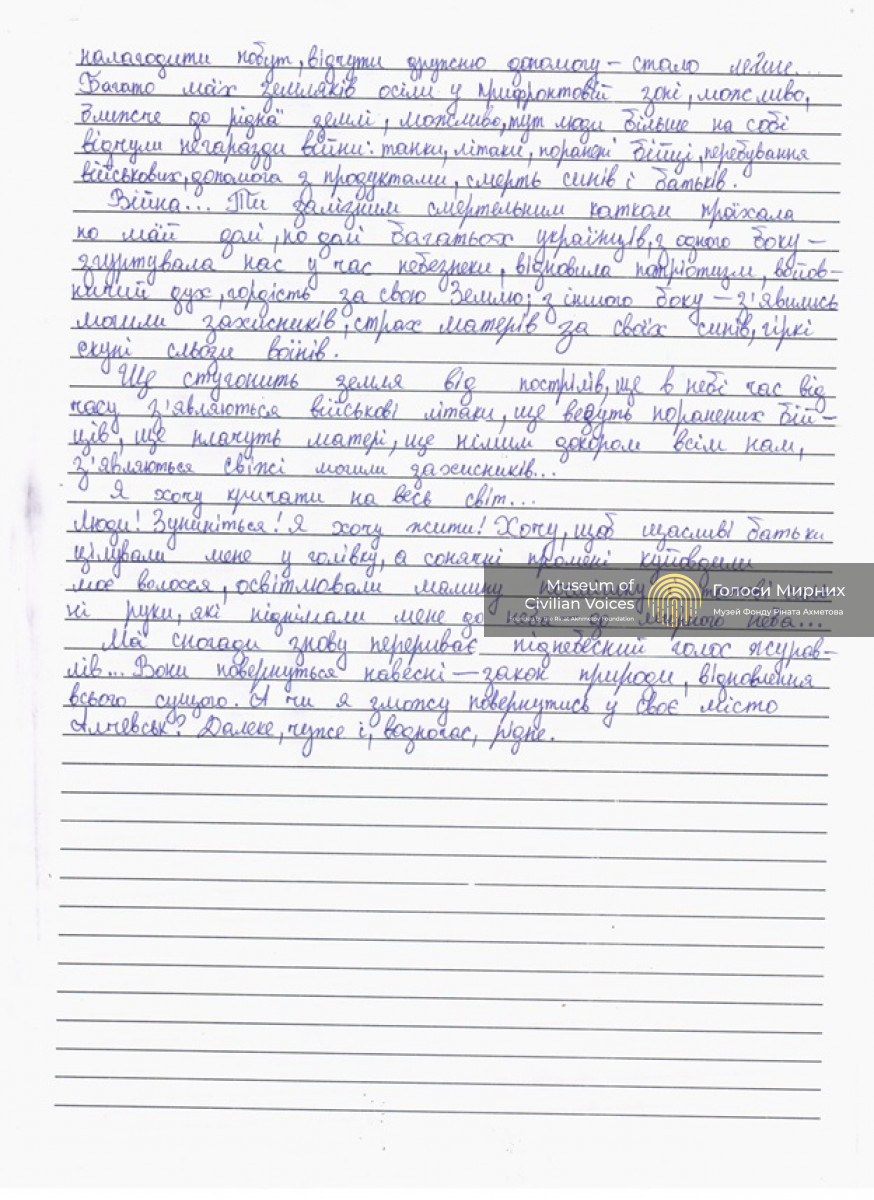 налагодити побут, відчути дружню допомогу – стало легше...
Багато моїх земляків осіли у прифронтовій зоні, можливо,
ближче до рідної землі, можливо, тут люди більше на собі
відчули негаразди війни: танки, літаки, поранені бійці, перебування
військових, допомога з продуктами, смерть синів і батьків.
Війна... Ти залізним смертельним катком проїхала
по моїй долі, по долі багатьох українців, з одного боку –
згуртувала нас у час небезпеки, відновила патріотизм, войов-
ничий дух, гордість за свою Землю; з іншого боку – з'явились
могили захисників, страх матерів за своїх синів, гіркі
скупі сльози воїнів.
Ще стугонить земля від пострілів, ще в небі час від
часу з'являються військові літаки, ще везуть поранених бій-
ців, ще плачуть матері, ще німим докором всім нам,
з'являються свіжі могили захисників...
Я хочу кричати на весь світ...
Люди! Зупиніться! Я хочу жити! Хочу, щоб щасливі батьки
цілували мене у голівку, а сонячні промені куйовдили
моє волосся, освітлювали мамину
ні руки, які піднімали мене до неба, до мирного неба...
Мої спогади знову перериває піднебесний голос журав-
лів... Вони повернуться навесні – закон природи, відновлення
всього сущого. А чи я зможу повернутись у своє місто
Алчевськ? Далеке, чуже і, водночас, рідне.
Museum of
Civilian Voices
Голоси Мирних
Музей Фонду Ріната Ахметова